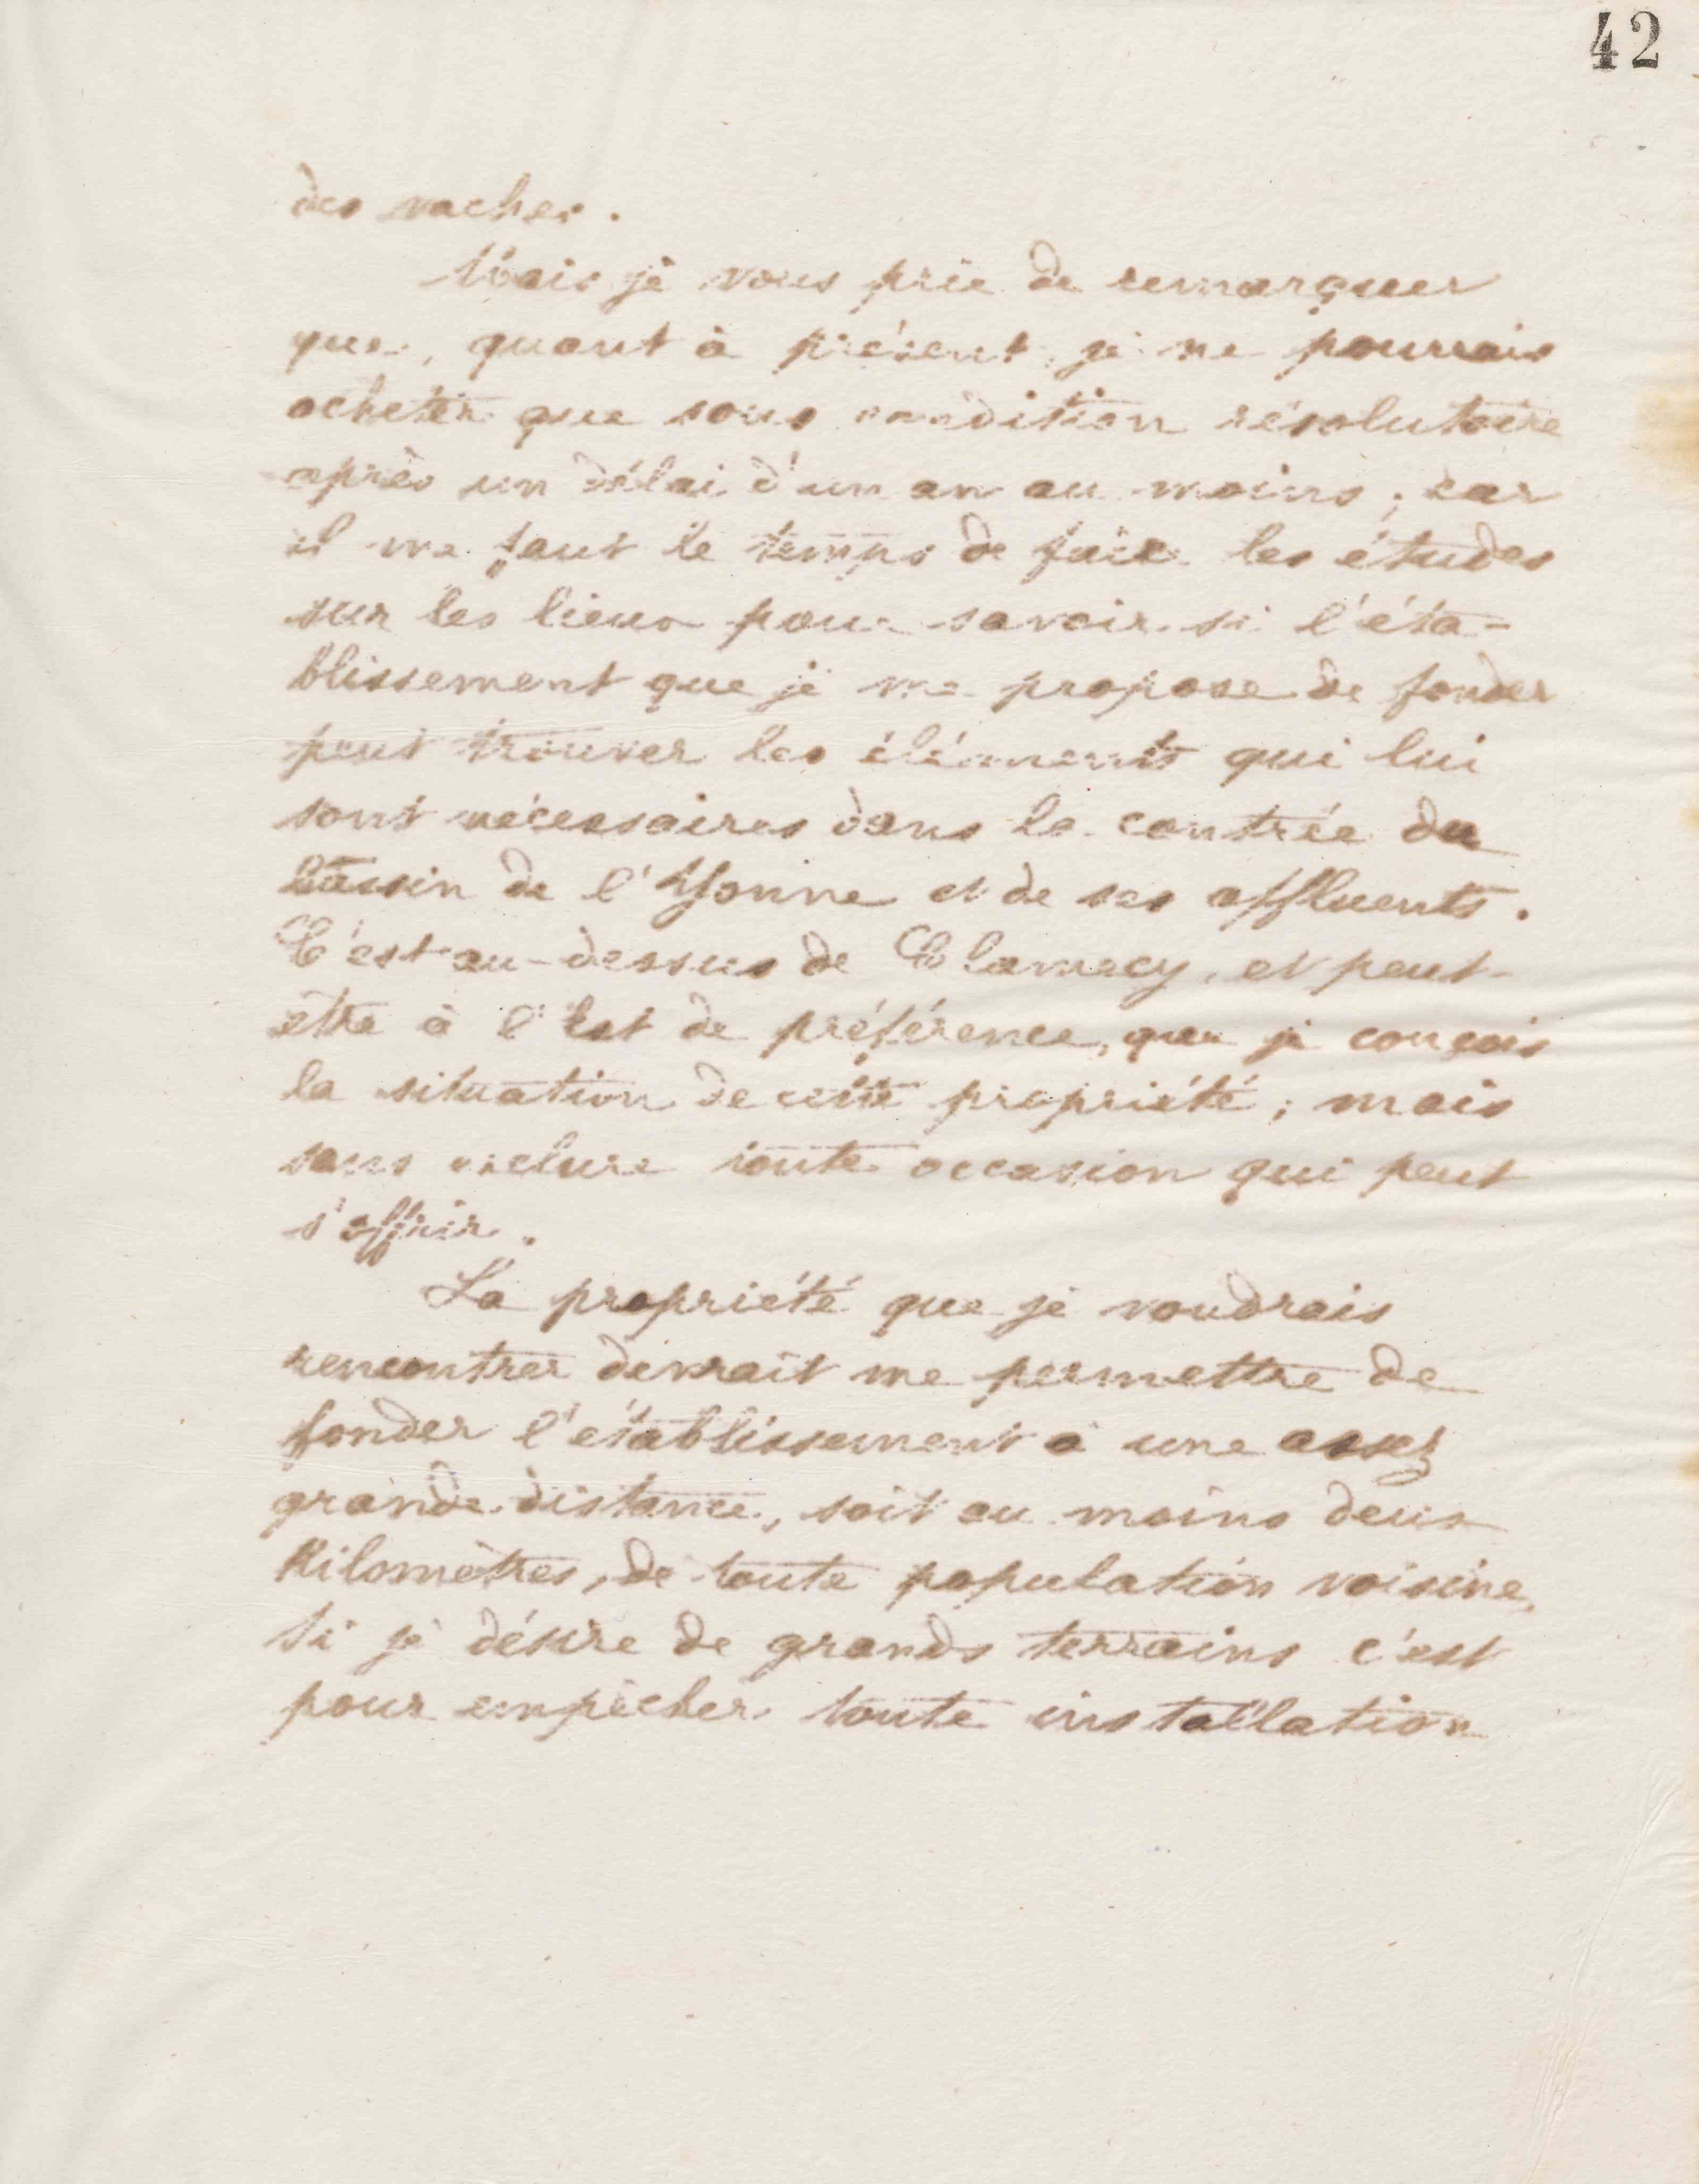 42
des vaches.
Mais je vous prie de remarquer
que, quant à présent, je ne pourrais
acheter que sous condition résolutoire
après un délai d'un an au moins ; car
il me faut le temps de faire les études
sur les lieux pour savoir si l'éta-
blissement que je me propose de fonder
peut trouver les éléments qui lui
sont nécessaires dans la contrée du
bassin de l'Yonne et de ses affluents.
C'est au-dessus de Clamecy, et peut-
être à l'Est de préférence, que je conçois
la situation de cette propriété ; mais
sans exclure toute occasion qui peut
s'offrir.
La propriété que je voudrais
rencontrer devrait me permettre de
fonder l'établissement à une assez
grande distance, soit au moins deux
Kilomètres, de toute population voisine,
Si je désire de grands terrains c'est
pour empêcher toute installation